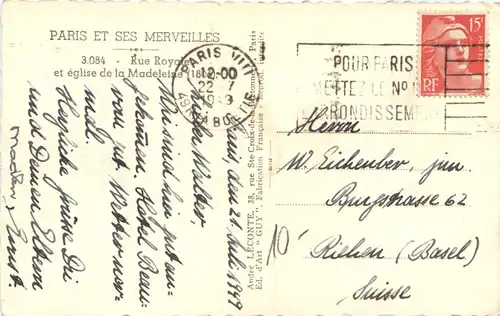 PARIS ET SES MERVEILLES
3.084 - Rue Royale
et église de la Madeleine
Paris, den 21. Juli 1949
Lieber Walter,
Wir sind hier gut an-
gekommen, Hotel Beau-
mal
Herzliche Grüsse Dir
und Deinen Eltern
Ernst.
André LECONTE, 38, rue Ste-Croix-de-la-
Ed. d'Art "GUY" Fabrication Française
PARIS VIII
12-00
22 - 7
1949
POUR PARIS
METTEZ LE N°
ARRONDISSEMENT
15F
RF
Herrn
W. Eichenber, jun.
Burgstrasse 62
Riehen (Basel)
Suisse
10